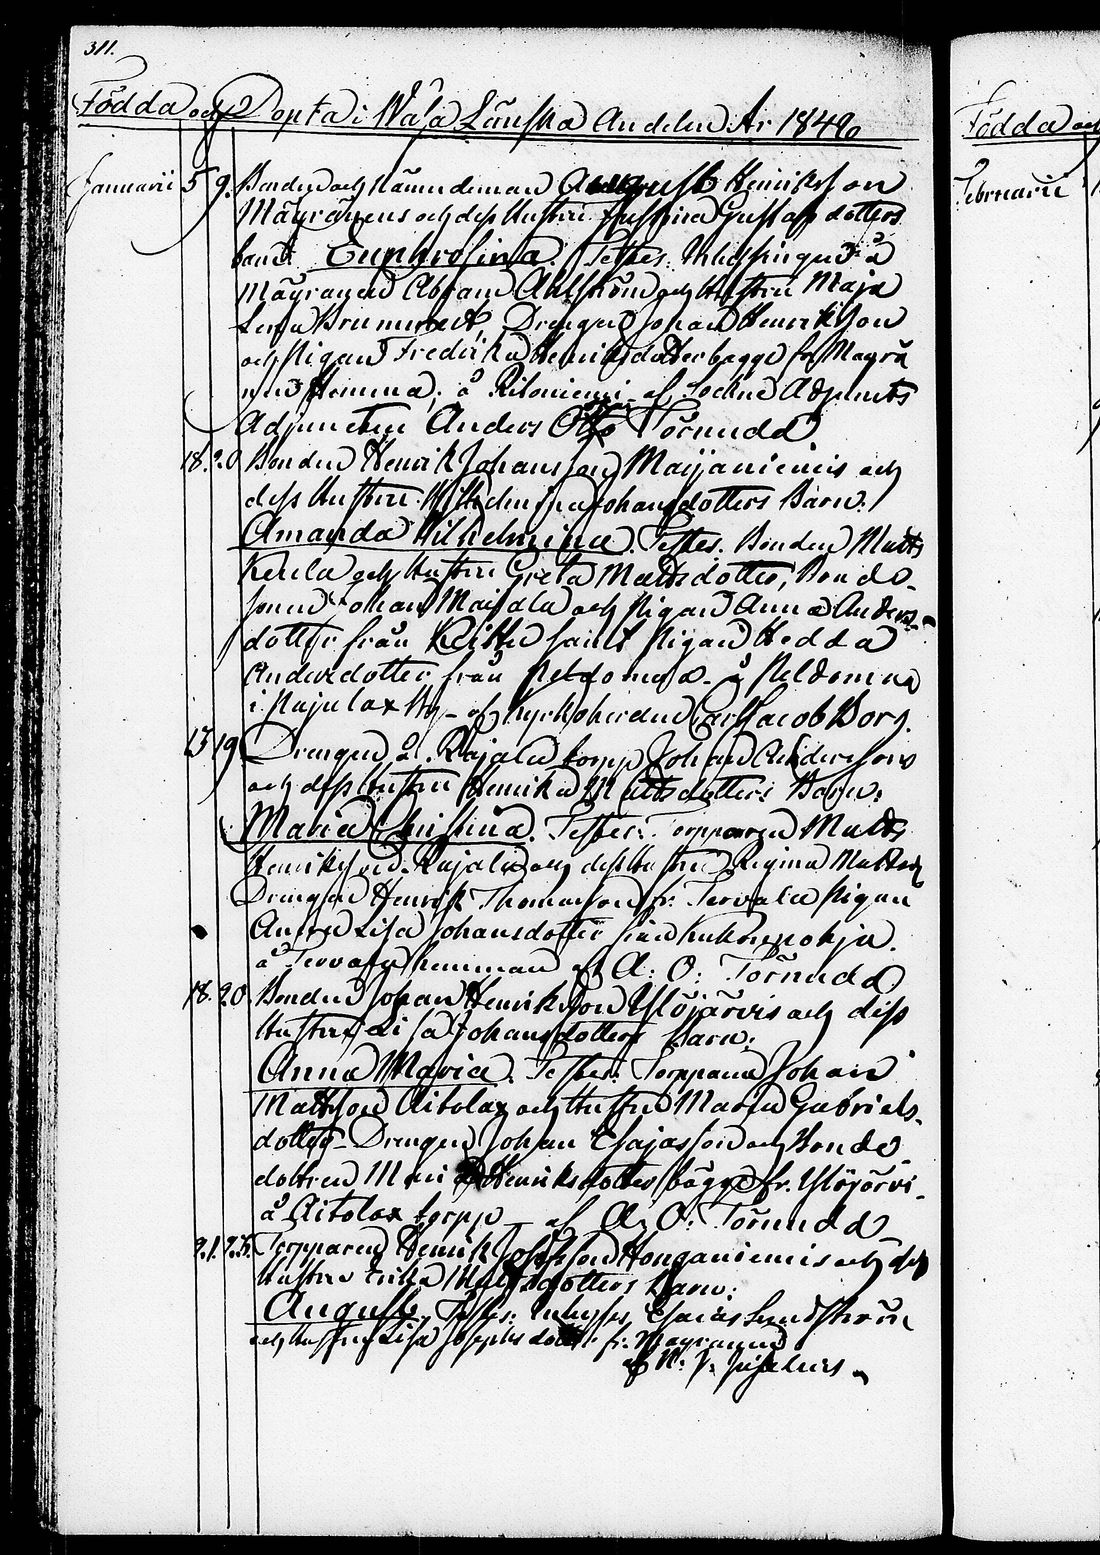 311.
Födda och Döpta i Wasa Länska Andelen År 1840
Födda och
Januarii 5 9. Bonden och Nämndeman August Henriksson
Februarii
Mäyränens och dess Hustru Justina Gustafsdotters
barn: Euphrosina. Testes: Inhysingen å
Mäyränen Abram Ahlström och Hustru Maja
Lena Brummert, Drengen Johan Henriksson
och Pigan Fredrika Henriksdotter bägge fr. Mäyrä
nen Hemma, å Riloniemi af Sockne Adjuncts
Adjuncten Anders Otto Törnudd
18. 20 Bonden Henrik Johansson Maijaniemis och
dess Hustru Wilhelmina Johansdotters Barn:
Amanda Wilhelmina. Testes. Bonden Matts
Keula och Hustru Greta Mattsdotter, Bonde-
sonen Johan Maijala och Pigan Anna Anders-
dotter från samt Pigan Hedda
Andersdotter från Peldomaa. å Peldomaa
i af Kyrkoherden Carl Jacob Borg.
15 19 Drengen å Rajala torpp Johan Anderssons
och dess Hustru Henrika Mattsdotters Barn:
Maria Christina. Testes: Torpparen Matts
Henriksson Rajala och dess Hustru Regina Mattsd
Drengen Henrik Thomasson fr. Tervala Pigan
Anna Lisa Johansdotter från
å hemman af A: O: Törnudd
18. 20 Bonden Johan Henriksson Ylöjärvis och dess
Hustru Lisa Johansdotters Barn:
Anna Maria. Testes: Torpparen Johan
Mattsson Aitolax och Hustrun Maria Gabriels-
dotter - Drengen Johan Esajasson och Bonde
dottren Maria Henriksdotter bägge fr. Ylöjärvi-
å Aitolax torpp af A: O: Törnudd
21. 25. Torpparen Henrik Josephsson Honganiemis och dess
Hustru Erika Mattsdotters Barn:
August. Testes: Inhyses Esaias Lundström
och Hustru Lisa Josephsdotter fr. Mäyränen
af N. J.